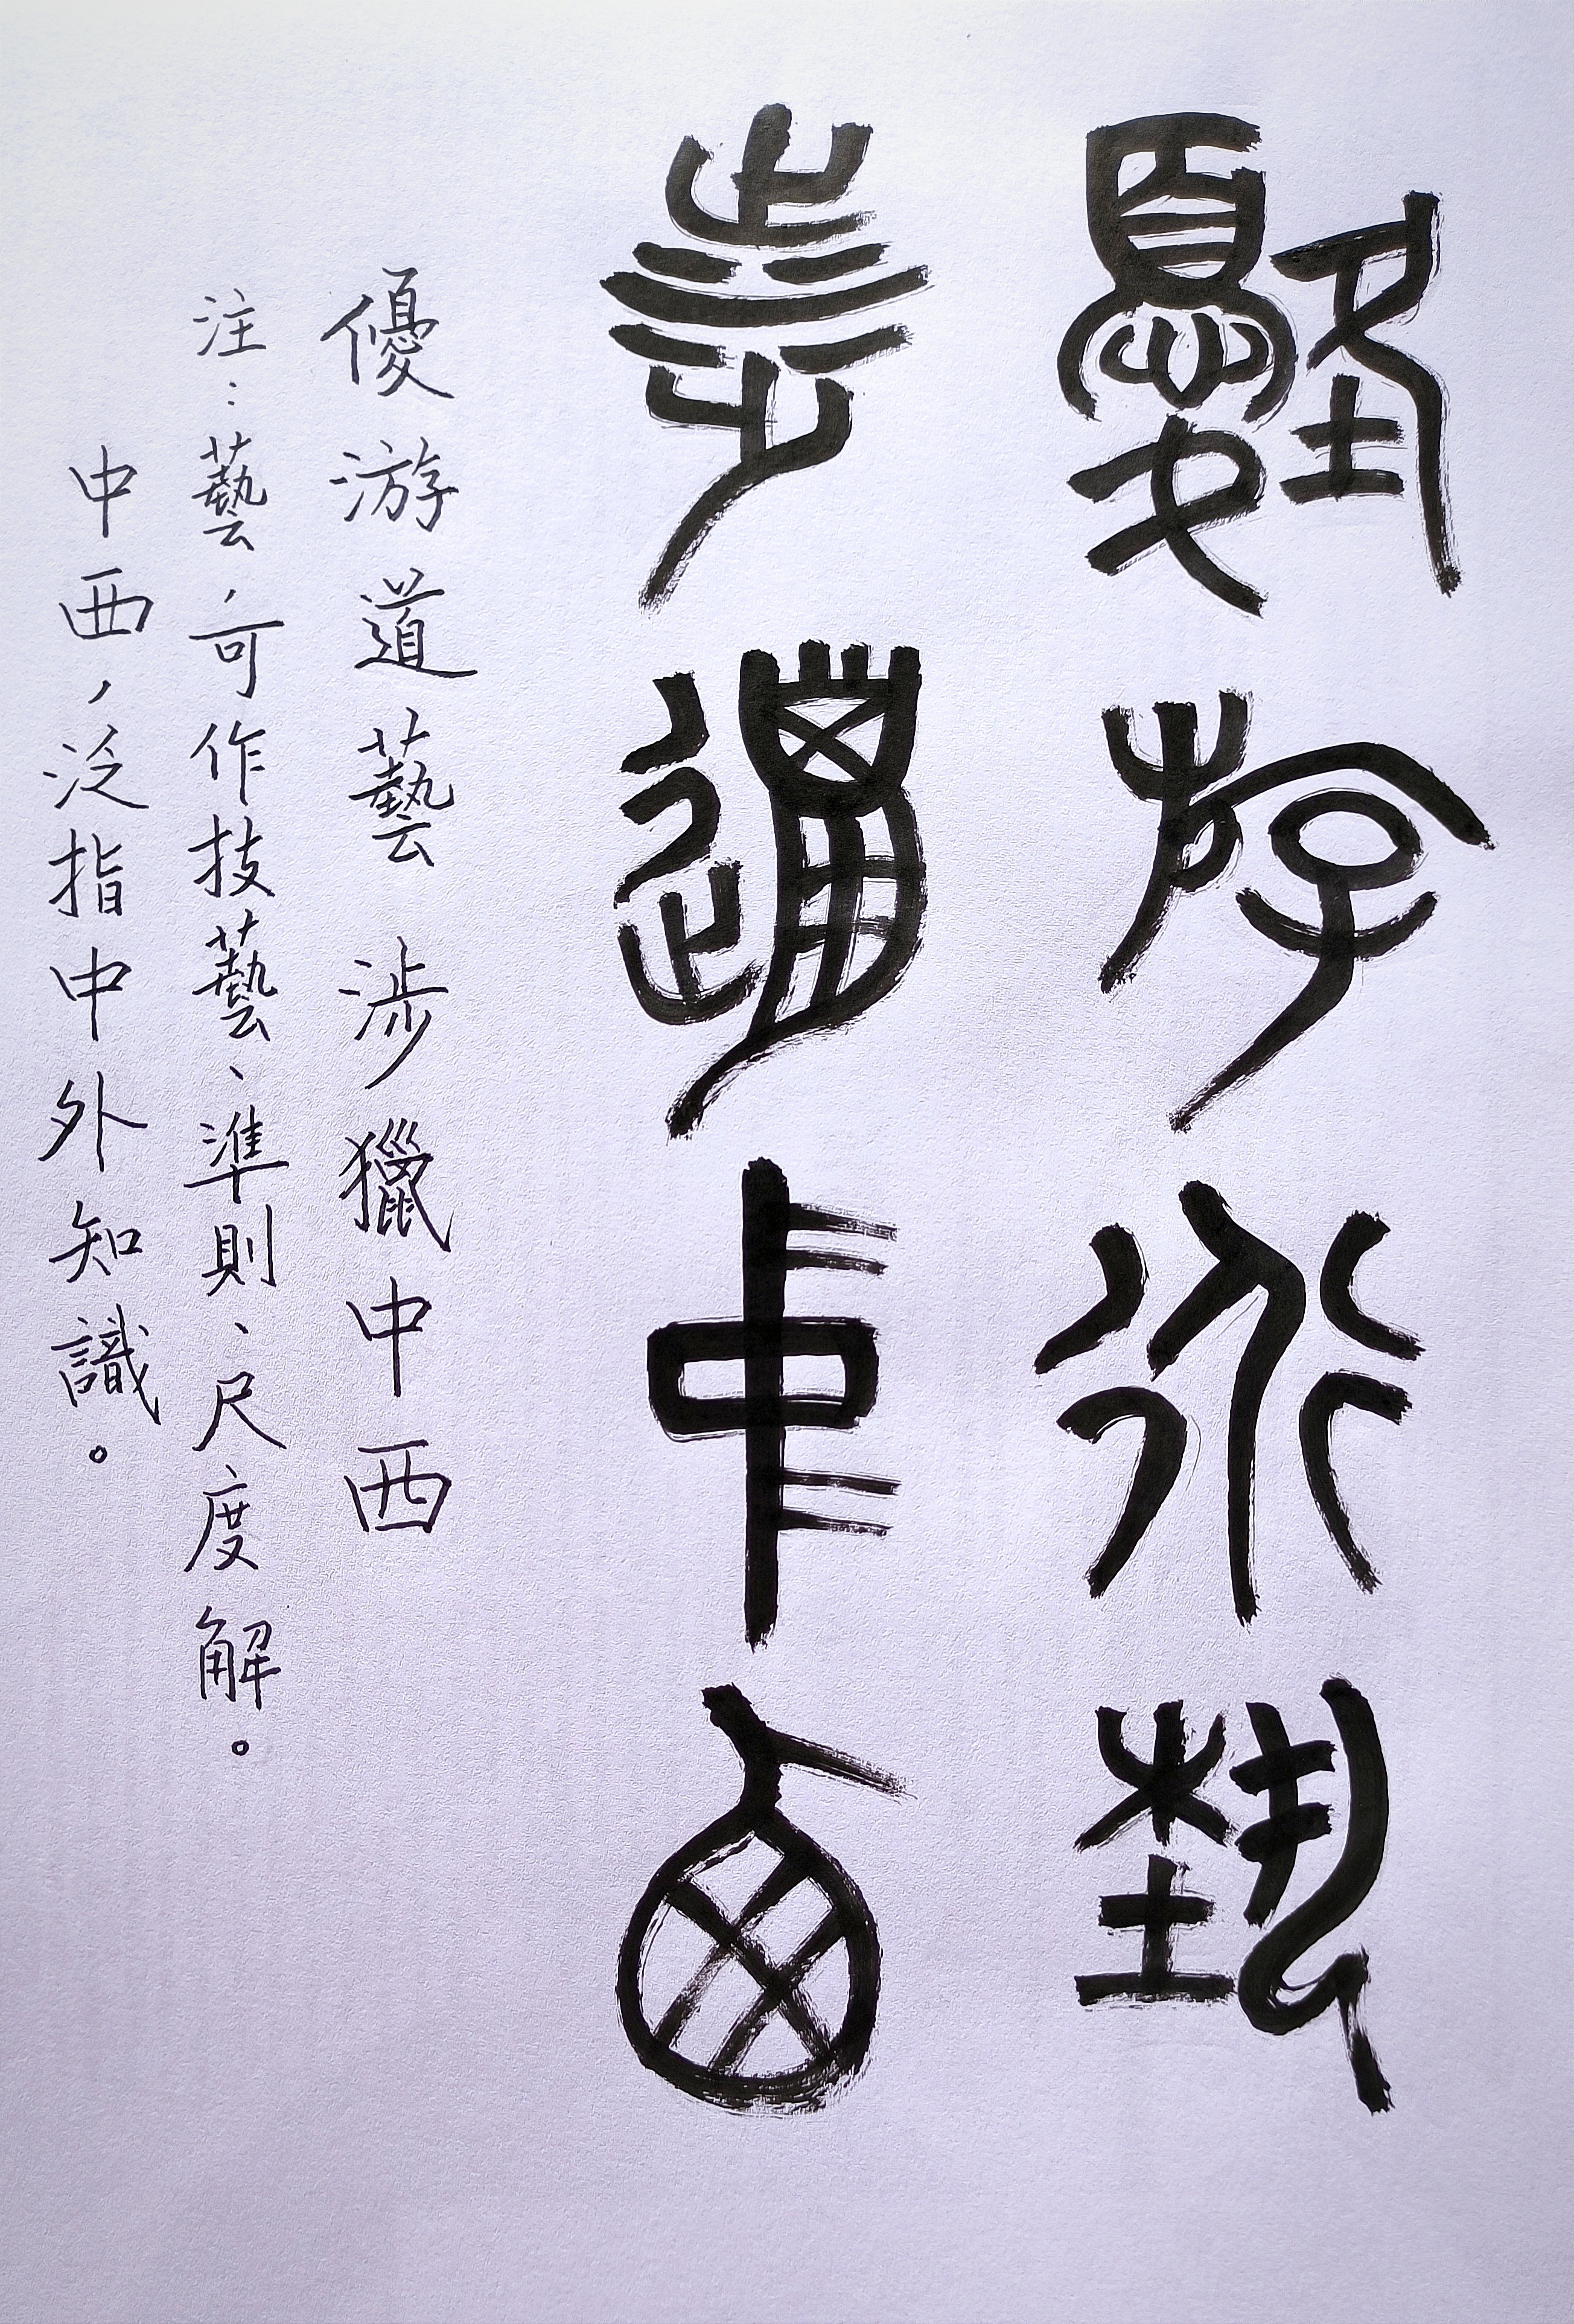 優游道藝
涉獵中西
優游道藝 涉獵中西
注：藝，可作技藝、準則、尺度解。
中西，泛指中外知識。